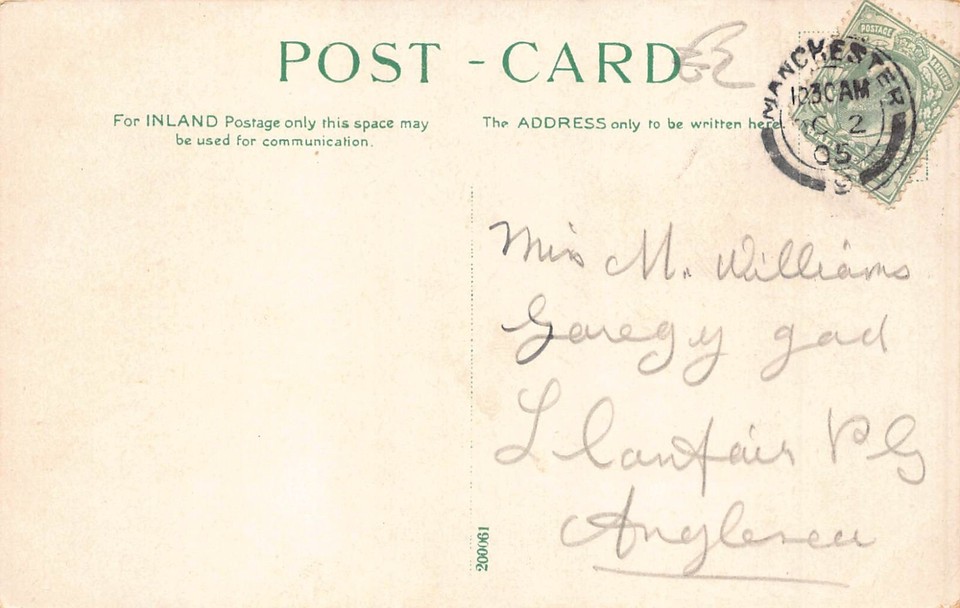 POST - CARD
For INLAND Postage only this space may
be used for communication.
The ADDRESS only to be written here.
POSTAGE
MANCHESTER
1030AM
OC 2
05
9
Miss M. Williams
Garegy gad
Llanfair P G
Anglesea
200061